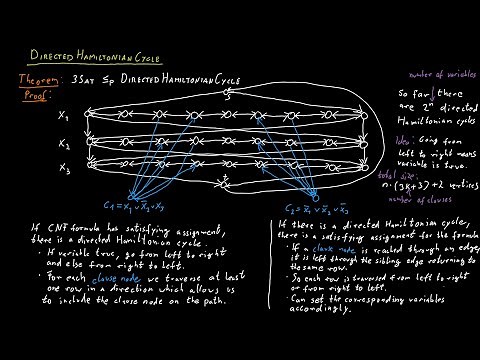 DIRECTED HAMILTONIAN CYCLE
Theorem: 3SAT ≤p DIRECTED HAMILTONIAN CYCLE
Proof:
s
x1
x2
x3
t
C1 = x1 ∨ x̄2 ∨ x3
C2 = x̄1 ∨ x̄2 ∨ x̄3
number of variables
So far, there
are 2^n directed
Hamiltonian cycles
Idea: Going from
left to right means
variable is true.
total size:
n·(3k+3)+2 vertices
number of clauses
If CNF formula has satisfying assignment,
there is a directed Hamiltonian cycle.
· If variable true, go from left to right
and else from right to left.
· For each clause node we traverse at least
one row in a direction which allows us
to include the clause node on the path.
If there is a directed Hamiltonian cycle,
there is a satisfying assignment for the formula
· If a clause node is reached through an edge,
it is left through the sibling edge returning to
the same row.
· So each row is traversed from left to right
or from right to left.
· Can set the corresponding variables
accordingly.